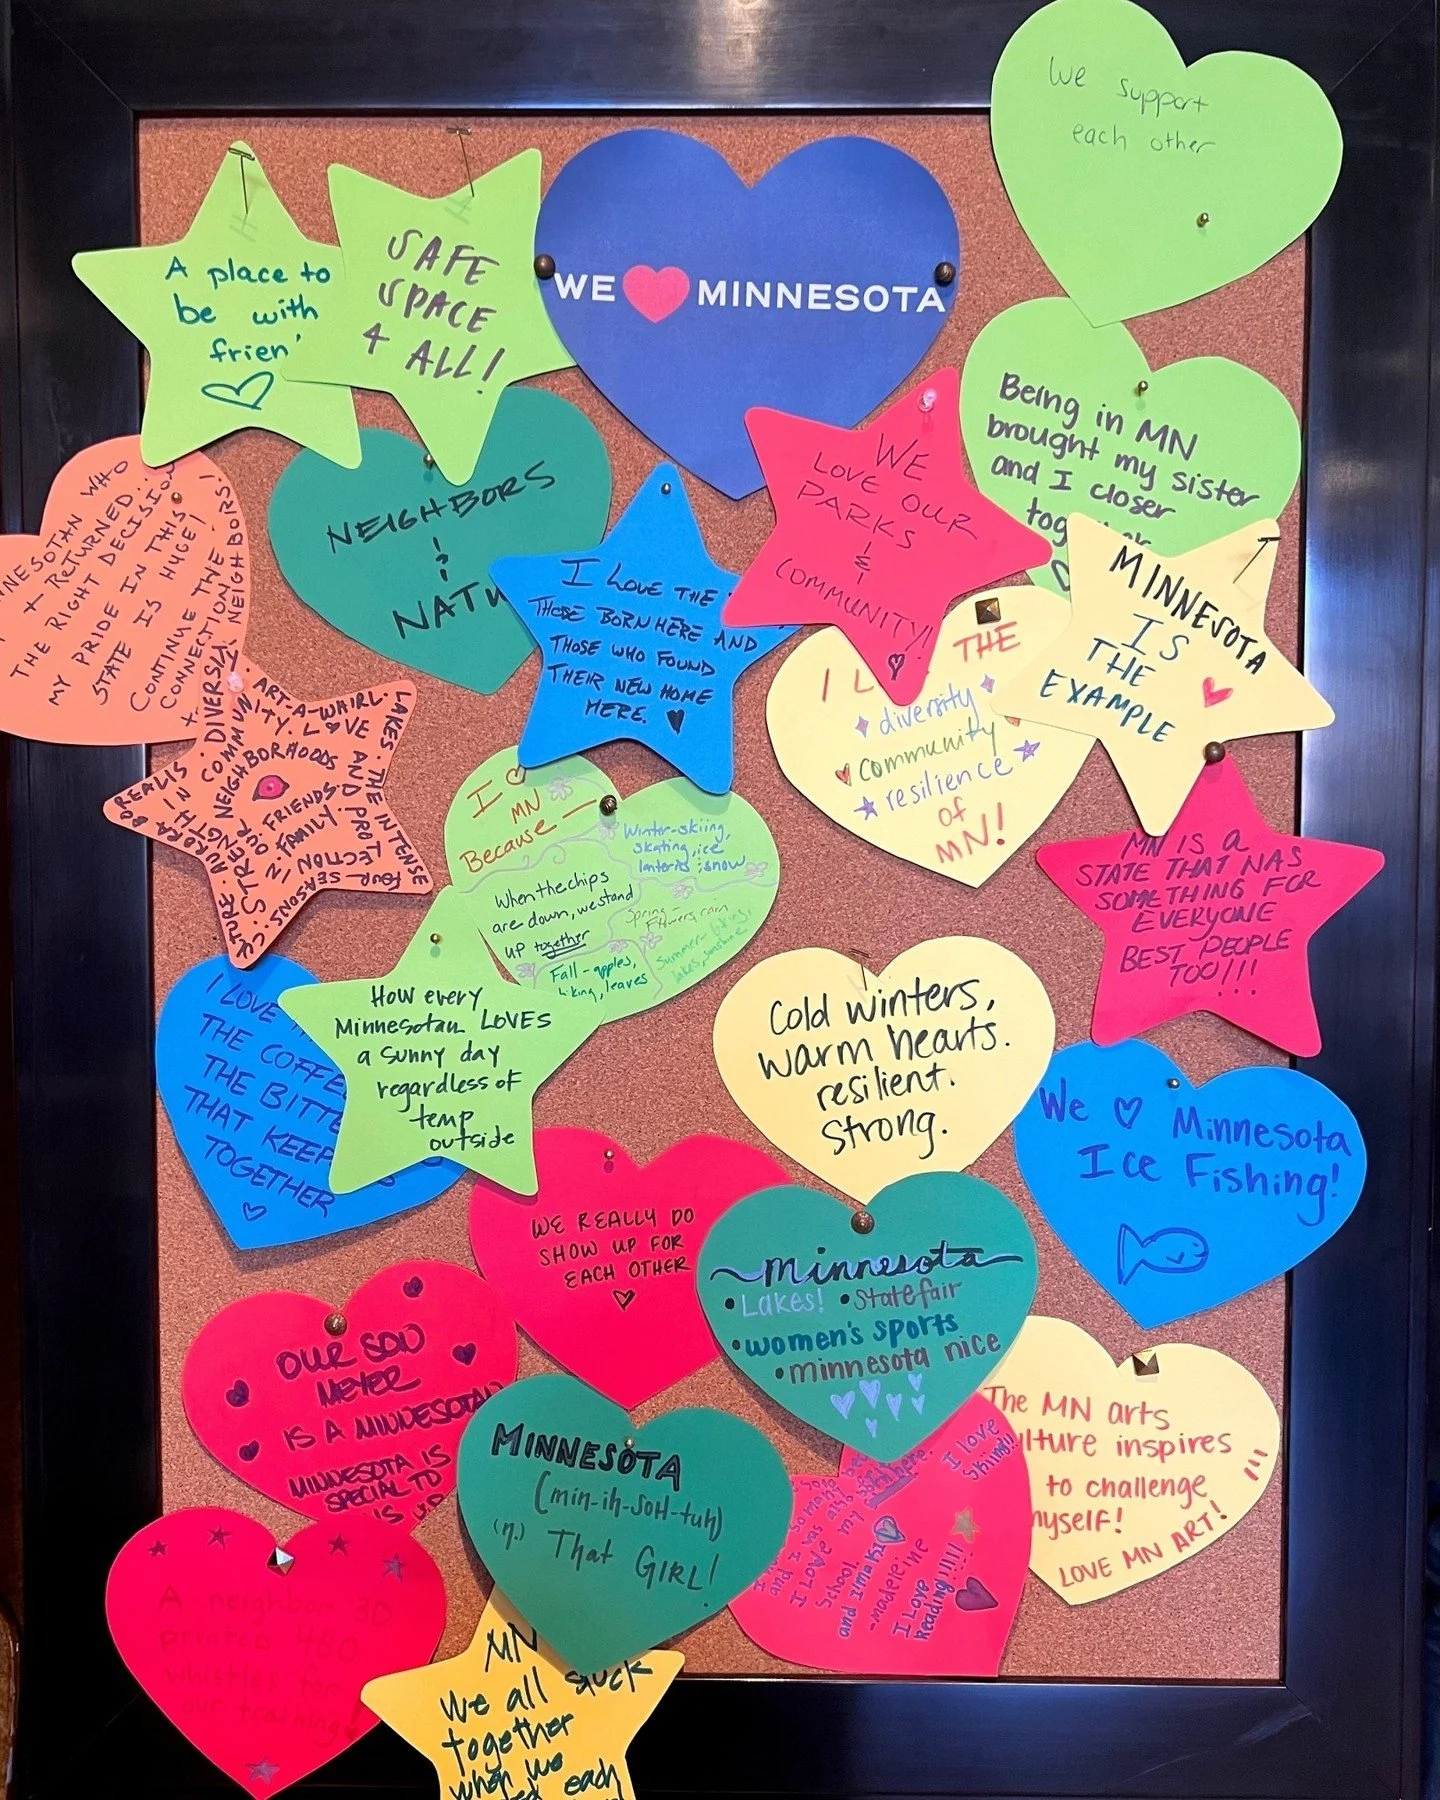 We support
each other
A place to
be with
frien
SAFE
SPACE
4 ALL!
WE MINNESOTA
Being in MN
brought my sister
and I closer
WE
LOVE OUR
PARKS
&
COMMUNITY!
NEIGHBORS
&
I LOVE THE
THOSE BORN HERE AND
THOSE WHO FOUND
THEIR NEW HOME
HERE.
MINNESOTA
IS
THE
EXAMPLE
NNESOTAN WHO
+ RETURNED...
THE RIGHT DECISION
MY PRIDE IN THIS
STATE IS HUGE!
CONTINUE THE
CONNECTION
+ DIVERSITY
NEIGHBORS!
THE
diversity
community
resilience
of
MN!
ART-A-WHIRL.
LOVE AND PROTECTION
LAKES
THE INTENSE
FOUR SEASONS.
COMMUNITY.
NEIGHBORHOODS
FRIENDS.
FAMILY
STRENGTH IN
OUR
I MN
Because
When the chips
are down, we stand
up together
Winter-skiing,
skating, ice
lanterns, snow
Spring-
Flowers, rain
Summer-
lakes, sunshine
Fall-apples,
hiking, leaves
MN IS A
STATE THAT HAS
SOMETHING FOR
EVERYONE
BEST PEOPLE
TOO!!!
I LOVE
THE COFFE
THE BITTE
THAT KEEP
TOGETHER
How every
Minnesotan LOVES
a sunny day
regardless of
temp
outside
Cold winters,
warm hearts.
resilient.
strong.
We Minnesota
Ice Fishing!
WE REALLY DO
SHOW UP FOR
EACH OTHER
minnesota
• Lakes! • statefair
• women's sports
• minnesota nice
OUR SON
MEYER
IS A MINNESOTAN
MINNESOTA IS
SPECIAL TO
US
The MN arts
lture inspires
to challenge
myself!
LOVE MN ART!
MINNESOTA
(min-ih-soH-tuh)
(n.) That GIRL!
I love
skiing!!!
School.
I LOVE my
-madeleine
I Love
Reading!!!!!
A neighbor 3D
printed 480
whistles for
our training!
MN
We all stuck
together
when we
each